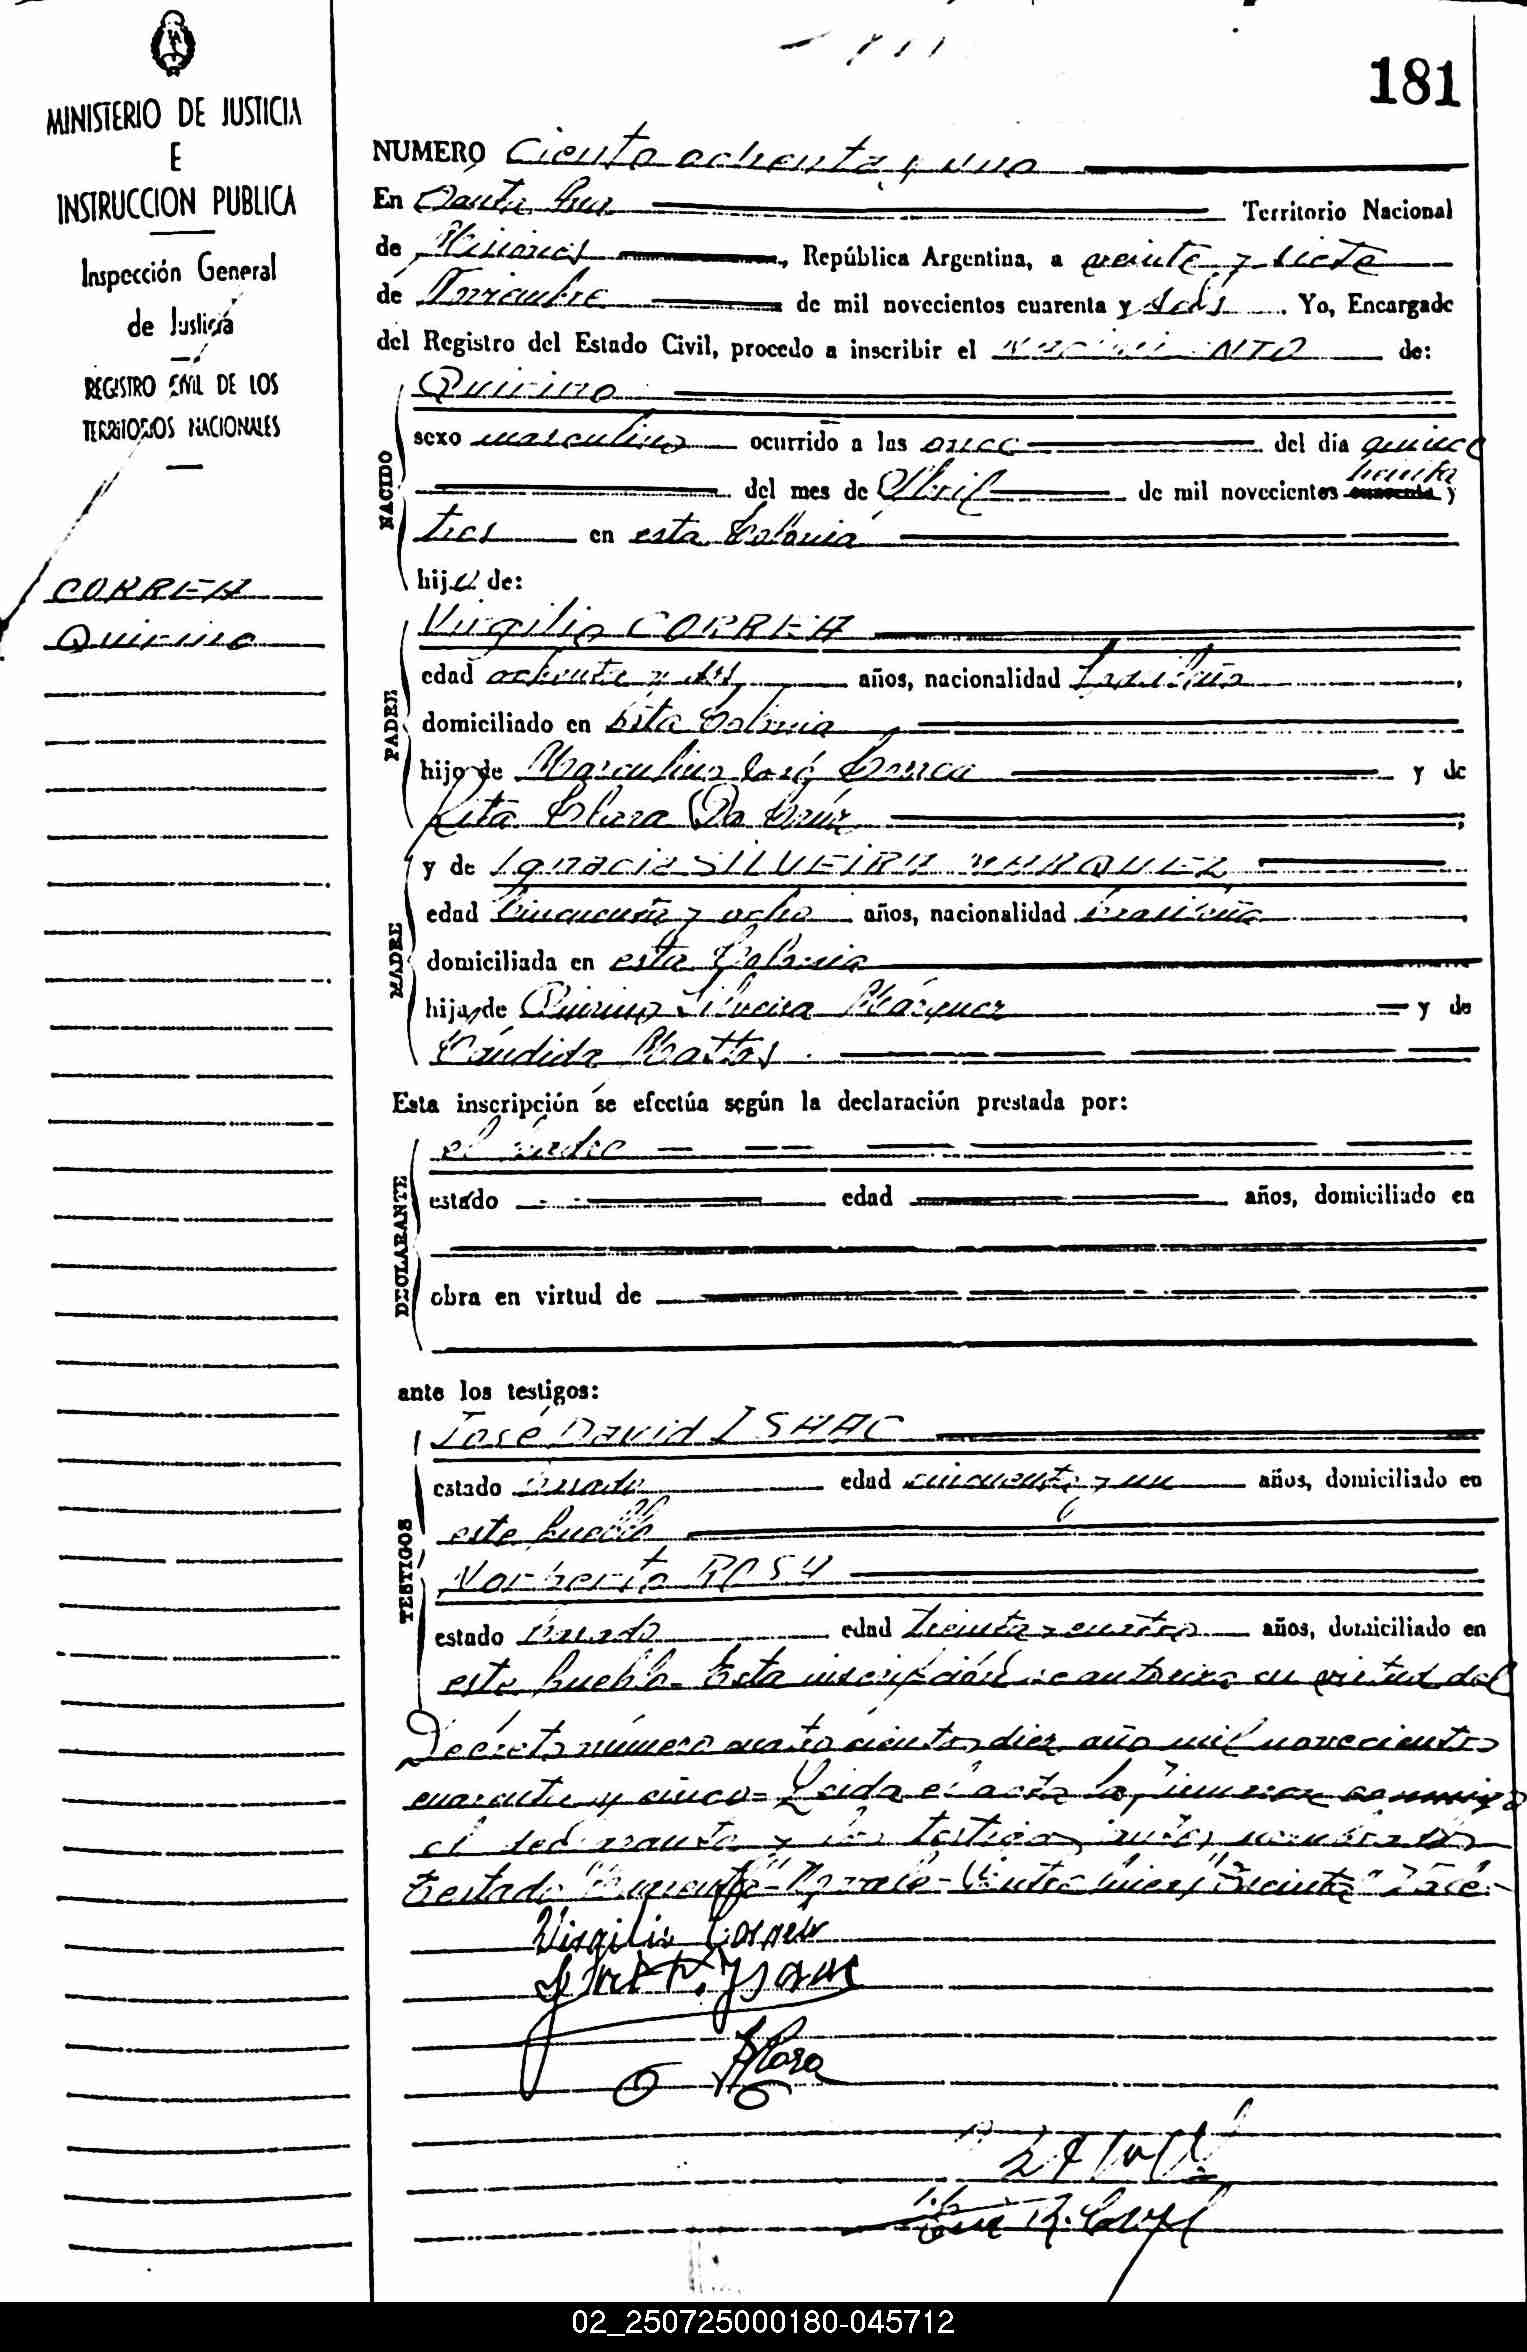 MINISTERIO DE JUSTICIA
E
INSTRUCCION PUBLICA
Inspección General
de Justicia
REGISTRO CIVIL DE LOS
TERRITORIOS NACIONALES
CORREA
Quirino
181
NUMERO Ciento ochenta y uno
En Santa Ana Territorio Nacional
de Misiones, República Argentina, a veinte y siete
de Noviembre de mil novecientos cuarenta y seis. Yo, Encargado
del Registro del Estado Civil, procedo a inscribir el NACIMIENTO de:
NACIDO
Quirino
sexo masculino ocurrido a las once del día quince
del mes de Abril de mil novecientos cuarenta treinta y
tres en esta Colonia
hijo de:
PADRE
Virgilio CORREA
edad ochenta y años, nacionalidad brasileña,
domiciliado en esta Colonia
hijo de Marculino José Correa y de
Rita Clara Da Cruz;
MADRE
y de Ignacia SILVEIRA MARQUEZ
edad cincuenta y ocho años, nacionalidad brasileña,
domiciliada en esta Colonia
hija de Quirino Silveira Márquez y de
Cándida Mattos.
Esta inscripción se efectúa según la declaración prestada por:
DECLARANTE
el padre
estado edad años, domiciliado en
obra en virtud de
ante los testigos:
TESTIGOS
José David ISAAC
estado casado edad cincuenta y un años, domiciliado en
este pueblo
Norberto ROSA
estado casado edad treinta y cuatro años, domiciliado en
este pueblo- Esta inscripción se autoriza en virtud del
Decreto número cuatrocientos diez año mil novecientos
cuarenta y cinco= Leida el acta la firman conmigo
el declarante y los testigos nombrados
Testado "cuarenta"- No vale- Entre lineas "treinta" Vale.-
Virgilio Correa
José D. Isaac
NRosa
02_250725000180-045712